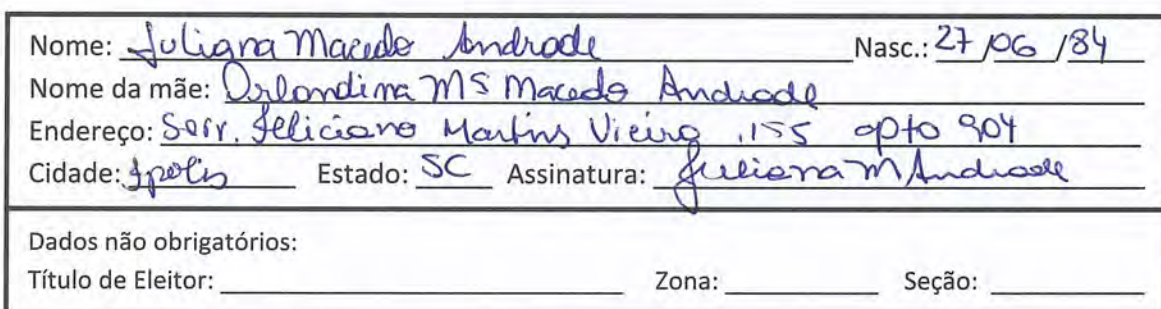 Nome: Juliana Macedo Andrade Nasc.: 27/06/84
Nome da mãe: Orlandina MS Macedo Andrade
Endereço: Serv. Feliciano Martins Vieira, 155 apto 904
Cidade: Fpolis Estado: SC Assinatura: Juliana M Andrade
Dados não obrigatórios:
Título de Eleitor: Zona: Seção: